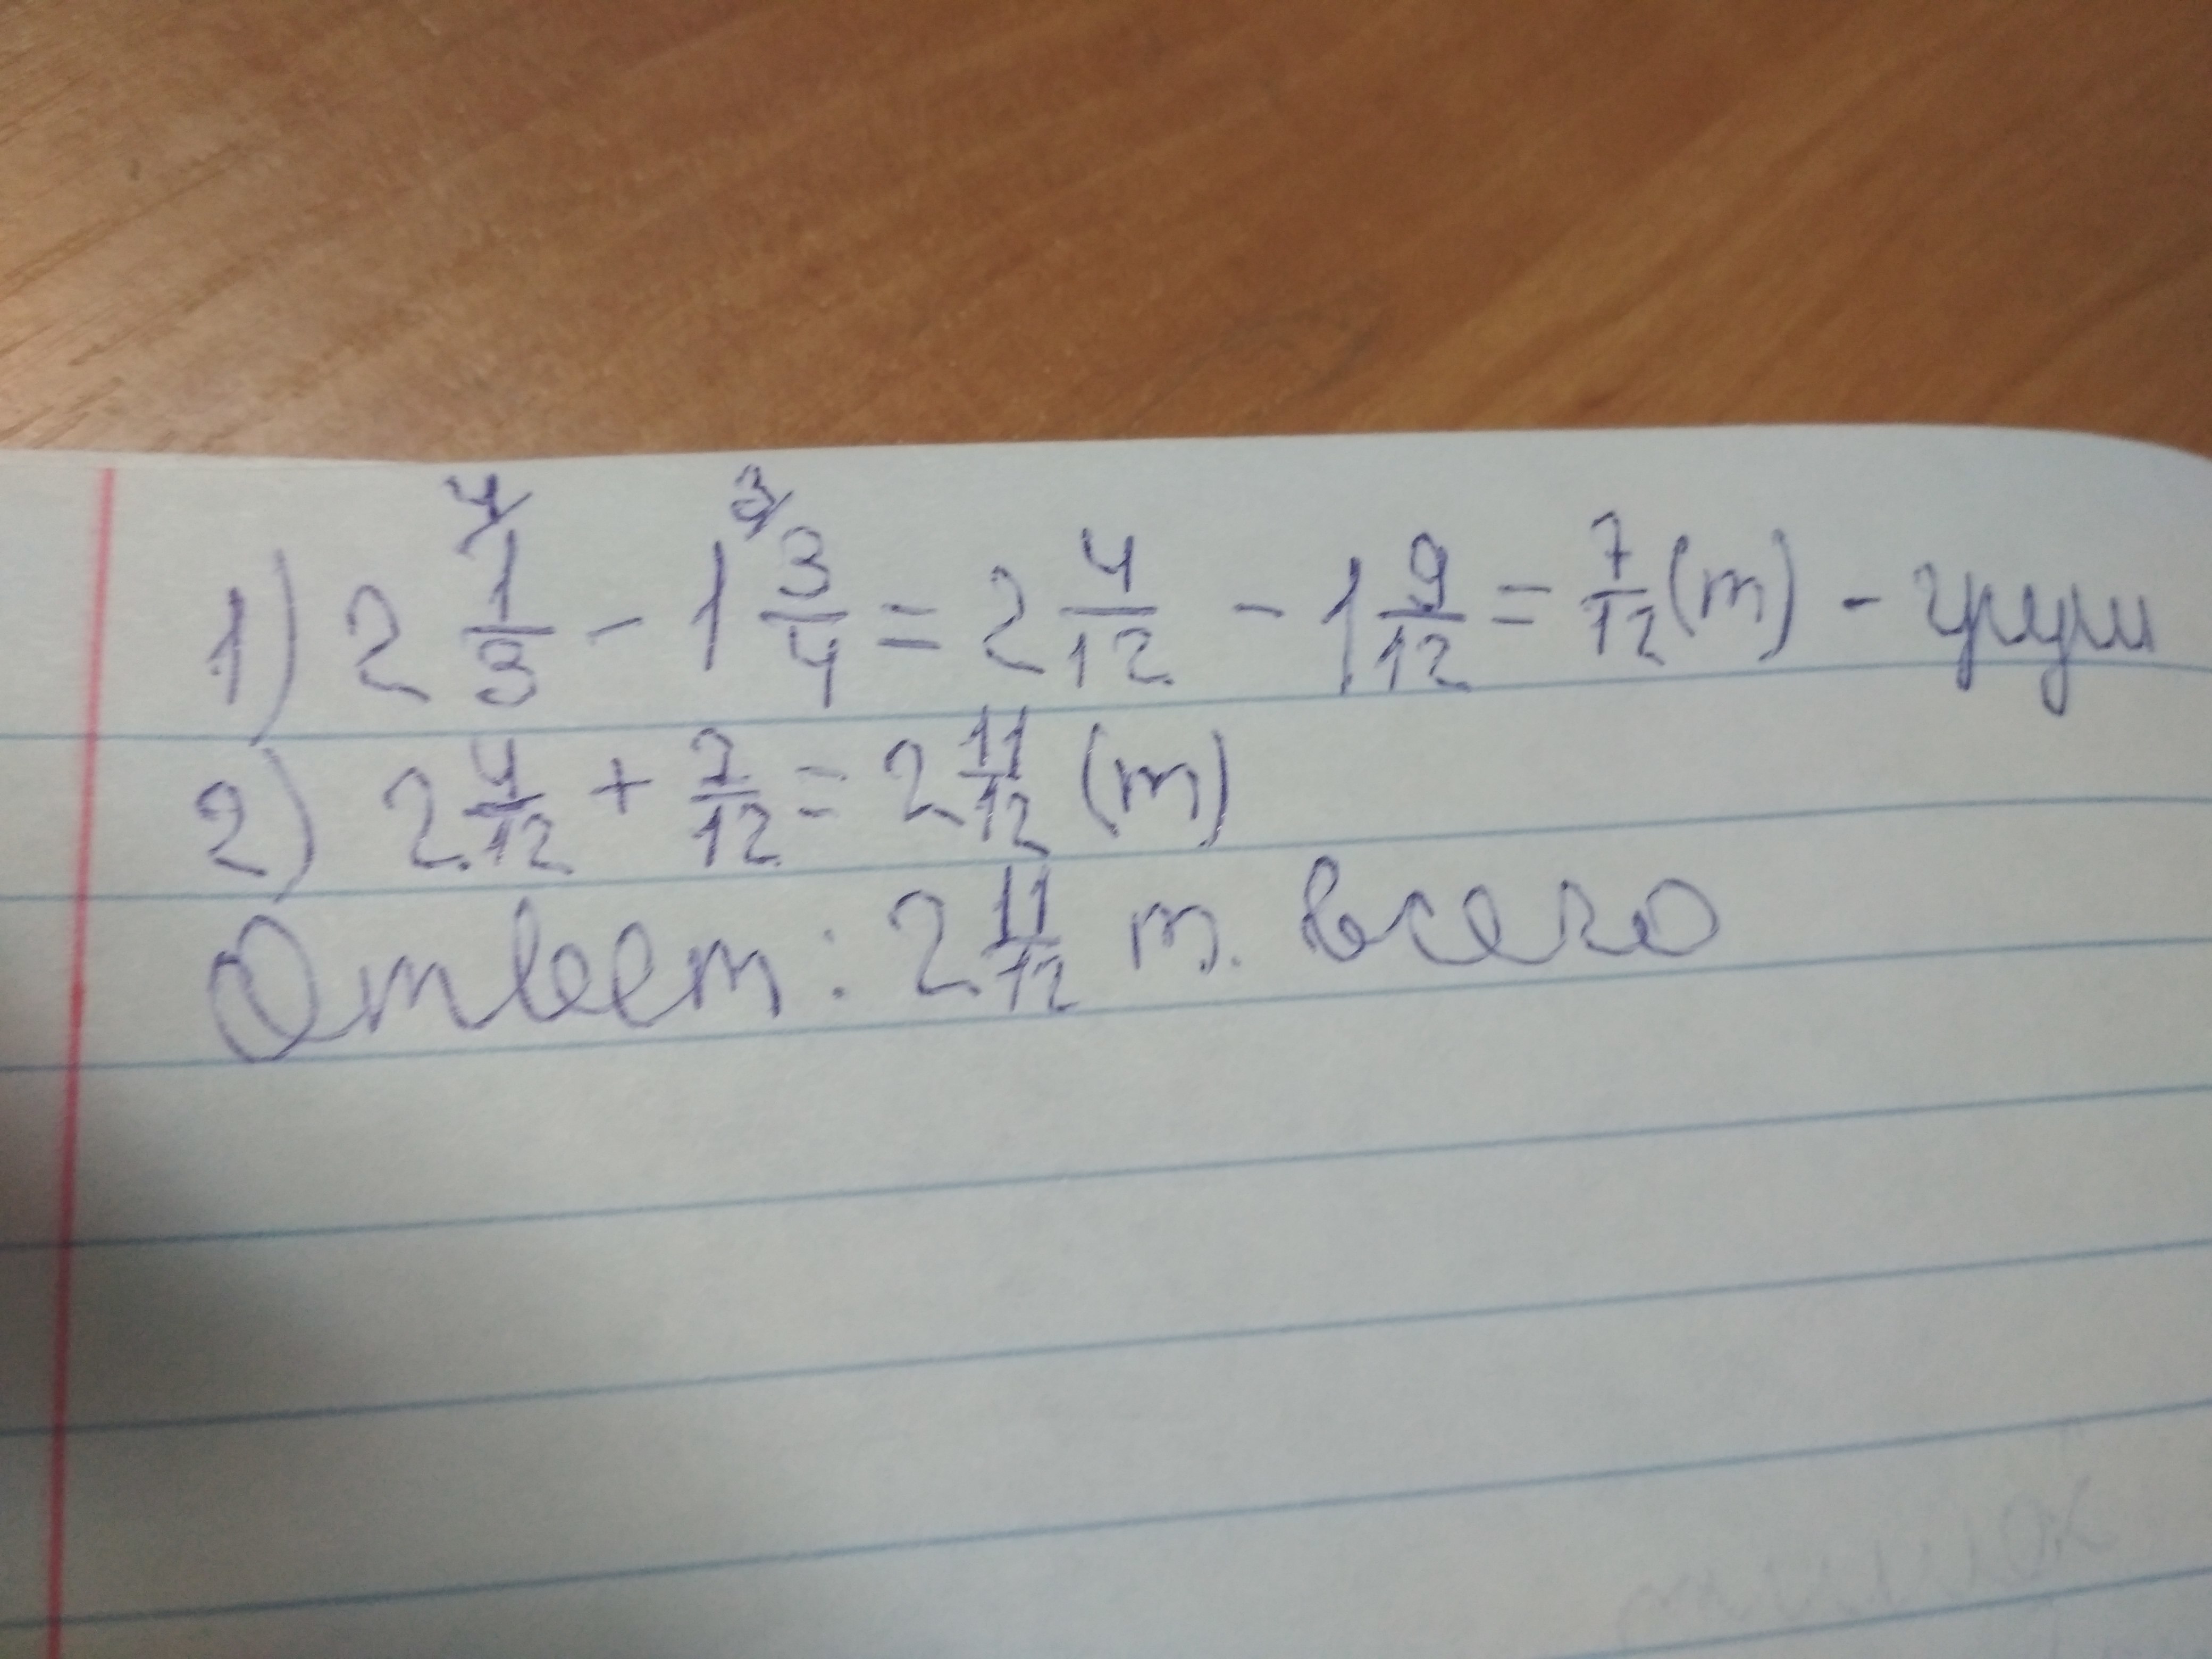 1) 2 1/3 - 1 3/4 = 2 4/12 - 1 9/12 = 7/12 (т) - груш
2) 2 4/12 + 7/12 = 2 11/12 (т)
Ответ: 2 11/12 т. всего